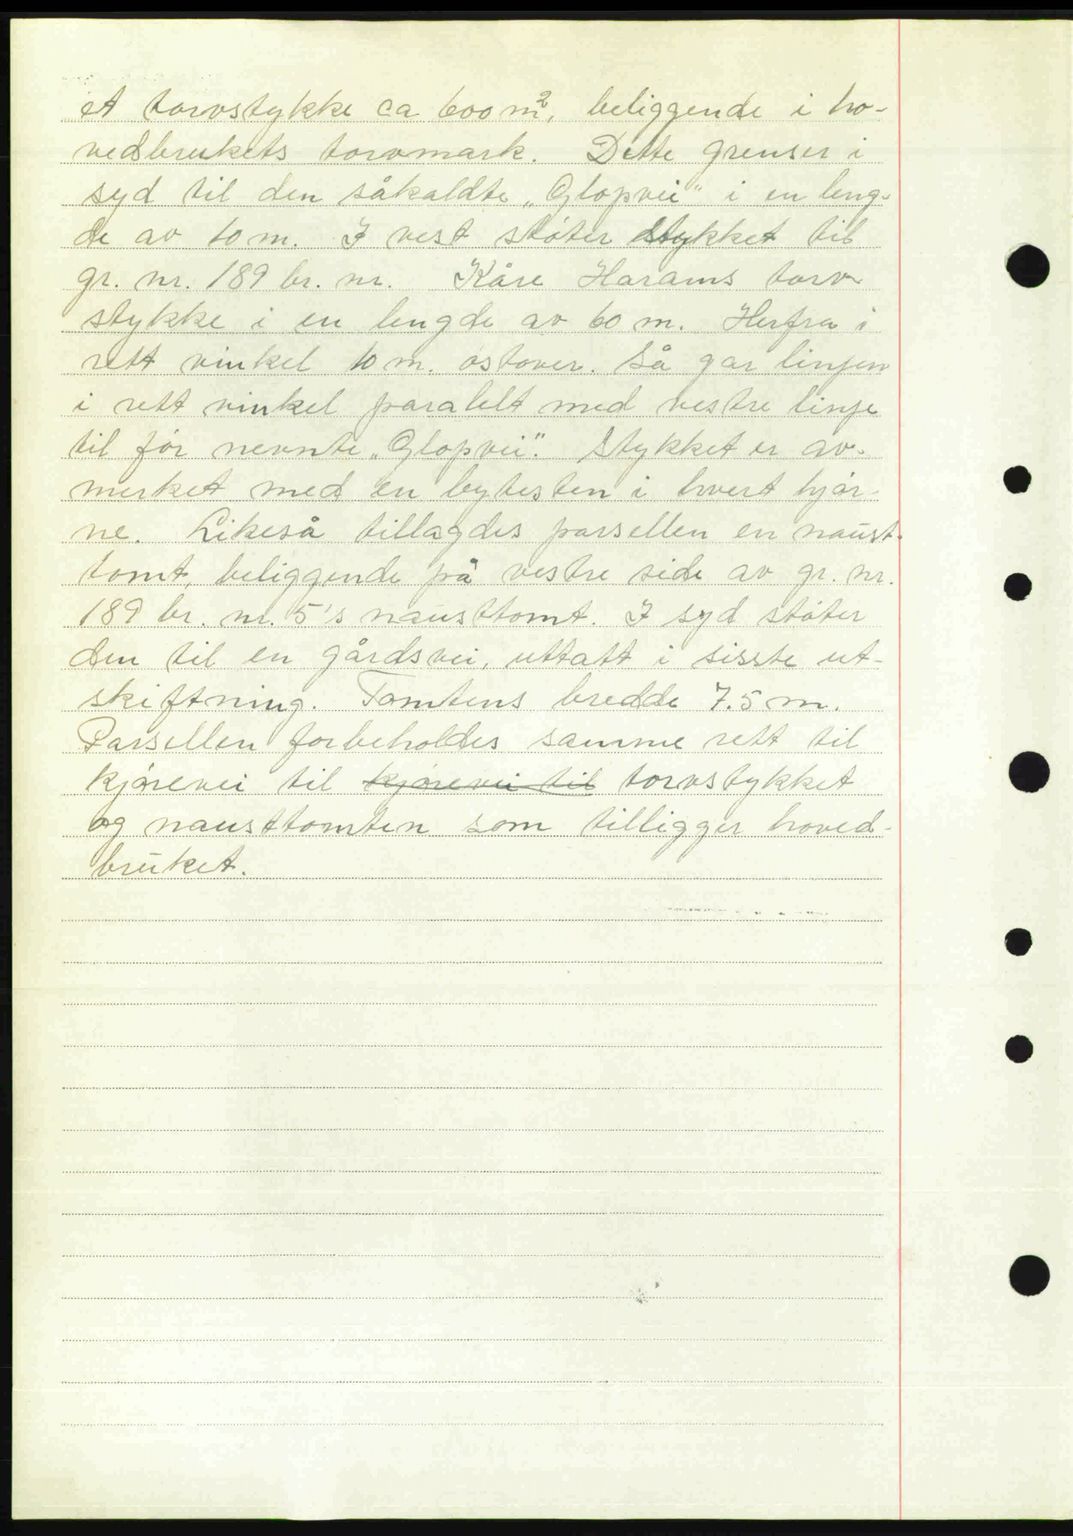 et torvstykke ca 600 m², beliggende i ho-
vedbrukets torvmark. Dette grenser i
syd til den såkaldte „Glopvei" i en leng-
de av 10 m. I vest støter stykket til
gr. nr. 189 br. nr. Kåre Harams torv
stykke i en lengde av 60 m. Herfra i
rett vinkel 10 m. østover. Så går linjen
i rett vinkel paralelt med vestre linje
til før nevnte „Glopvei". Stykket er av-
merket med en bytesten i hvert hjør-
ne. Likeså tillagdes parsellen en naust-
tomt, beliggende på vestre side av gr. nr.
189 br. nr. 5's nausttomt. I syd støter
den til en gårdsvei, uttatt i sisste ut-
skiftning. Tomtens bredde 7.5 m.
Parsellen forbeholdes samme rett til
kjørevei til kjørevei til torvstykket
og nausttomten som tilligger hoved-
bruket.